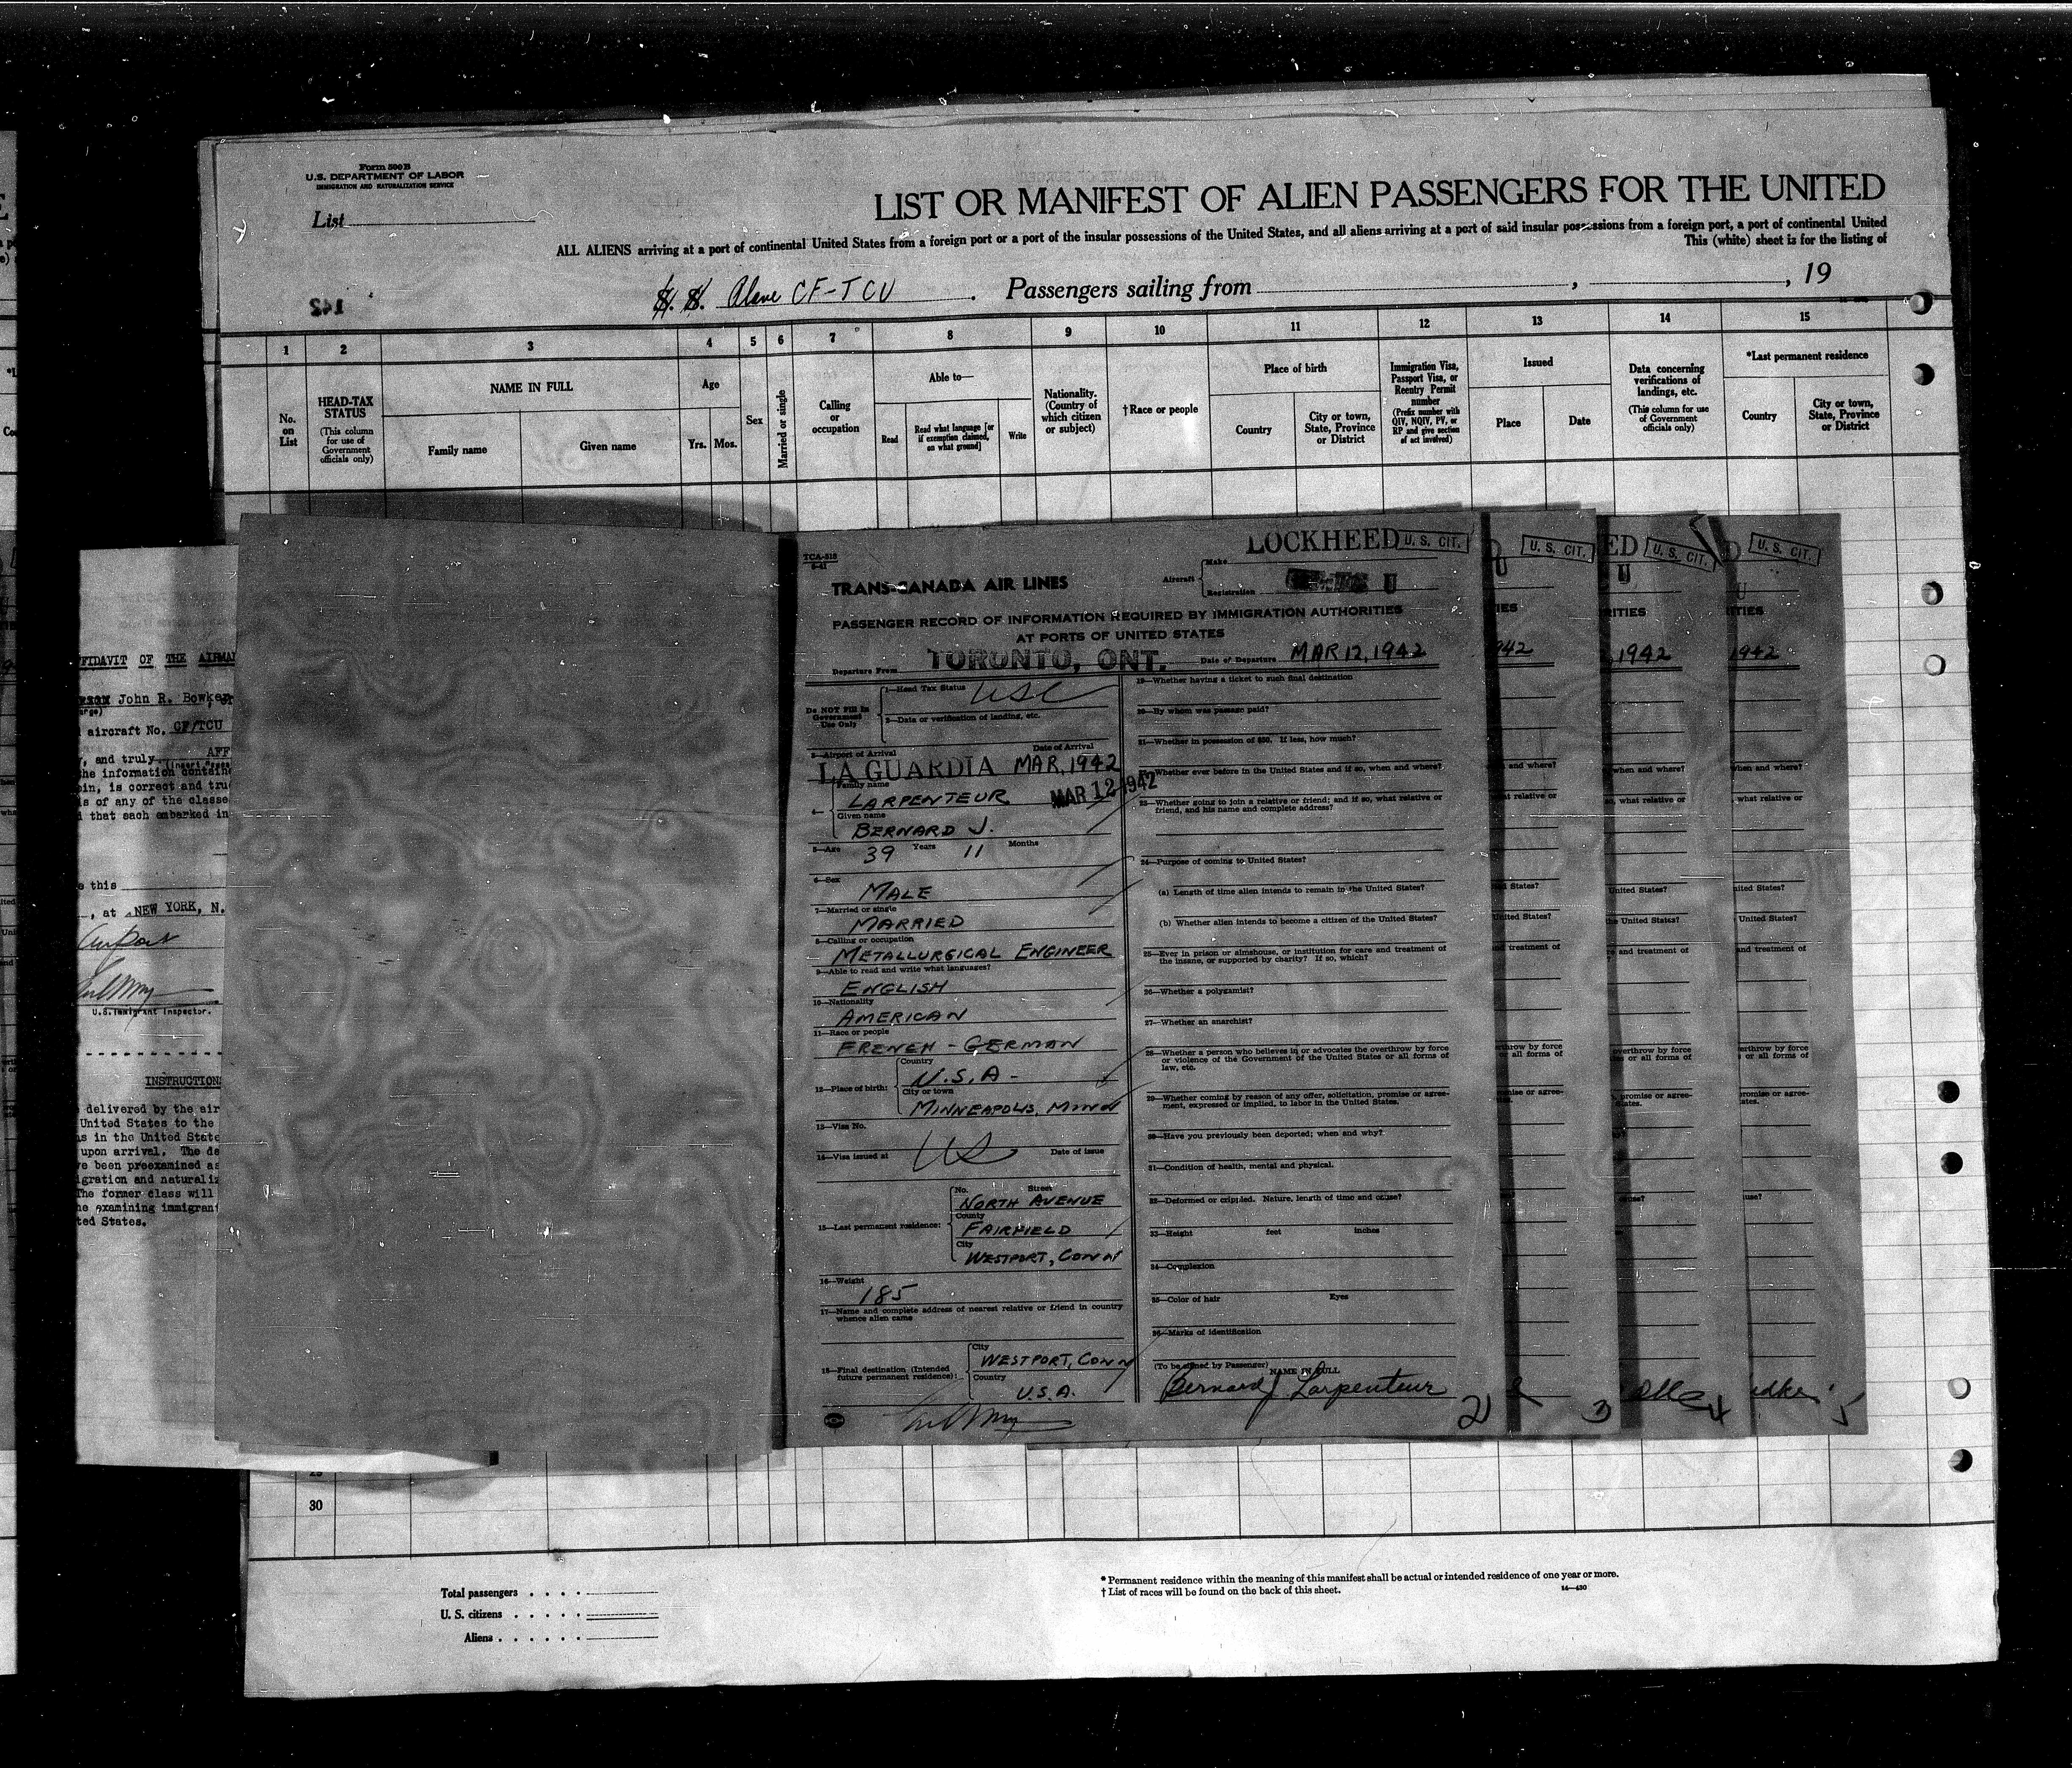 Form 500 B
U.S. DEPARTMENT OF LABOR
IMMIGRATION AND NATURALIZATION SERVICE
List
LIST OR MANIFEST OF ALIEN PASSENGERS FOR THE UNITED
ALL ALIENS arriving at a port of continental United States from a foreign port or a port of the insular possessions of the United States, and all aliens arriving at a port of said insular possessions from a foreign port, a port of continental United
This (white) sheet is for the listing of
142
S. S. Plane CF-TCU . Passengers sailing from , , 19
1 2 3 4 5 6 7 8 9 10 11 12 13 14 15
No. on List
HEAD-TAX STATUS
(This column for use of Government officials only)
NAME IN FULL
Family name Given name
Age
Yrs. Mos.
Sex
Married or single
Calling or occupation
Able to—
Read
Read what language [or if exemption claimed, on what ground]
Write
Nationality. (Country of which citizen or subject)
†Race or people
Place of birth
Country
City or town, State, Province or District
Immigration Visa, Passport Visa, or Reentry Permit number
(Prefix number with QIV, NQIV, PV, or RP and give section of act involved)
Issued
Place Date
Data concerning verifications of landings, etc.
(This column for use of Government officials only)
*Last permanent residence
Country
City or town, State, Province or District
FIDAVIT OF THE AIRMA
John R. Bowker
aircraft No. CF/TCU
, and truly
the information containe
ein, is correct and tru
is of any of the classe
d that each embarked in
e this
, at NEW YORK, N.
U.S. Immigrant Inspector.
INSTRUCTION
delivered by the air
United States to the
s in the United State
upon arrival. The de
e been preexamined as
igration and naturaliz
The former class will
he examining immigran
ted States.
TCA-318
6-41
TRANS-CANADA AIR LINES
Aircraft
Make LOCKHEED
U. S. CIT.
Registration U
PASSENGER RECORD OF INFORMATION REQUIRED BY IMMIGRATION AUTHORITIES
AT PORTS OF UNITED STATES
Departure From TORONTO, ONT. Date of Departure MAR 12, 1942
Do NOT Fill in Government Use Only
1—Head Tax Status USC
2—Data or verification of landing, etc.
3—Airport of Arrival Date of Arrival
LA GUARDIA MAR, 1942
MAR 12 1942
4—
Family name
LARPENTEUR
Given name
BERNARD J.
5—Age 39 Years 11 Months
6—Sex
MALE
7—Married or single
MARRIED
8—Calling or occupation
METALLURGICAL ENGINEER
9—Able to read and write what languages?
ENGLISH
10—Nationality
AMERICAN
11—Race or people
FRENCH - GERMAN
12—Place of birth:
Country
U.S.A -
City or town
MINNEAPOLIS, MINN
13—Visa No.
US
14—Visa issued at Date of issue
15—Last permanent residence:
No. Street
NORTH AVENUE
County
FAIRFIELD
City
WESTPORT, CONN
16—Weight
185
17—Name and complete address of nearest relative or friend in country
whence alien came
18—Final destination (Intended
future permanent residence):
City
WESTPORT, CONN
Country
U.S.A.
19—Whether having a ticket to such final destination
20—By whom was passage paid?
21—Whether in possession of $50. If less, how much?
22—Whether ever before in the United States and if so, when and where?
23—Whether going to join a relative or friend; and if so, what relative or
friend, and his name and complete address?
24—Purpose of coming to United States?
(a) Length of time alien intends to remain in the United States?
(b) Whether alien intends to become a citizen of the United States?
25—Ever in prison or almshouse, or institution for care and treatment of
the insane, or supported by charity? If so, which?
26—Whether a polygamist?
27—Whether an anarchist?
28—Whether a person who believes in or advocates the overthrow by force
or violence of the Government of the United States or all forms of
law, etc.
29—Whether coming by reason of any offer, solicitation, promise or agree-
ment, expressed or implied, to labor in the United States.
30—Have you previously been deported; when and why?
31—Condition of health, mental and physical.
32—Deformed or crippled. Nature, length of time and cause?
33—Height feet inches
34—Complexion
35—Color of hair Eyes
36—Marks of identification
(To be signed by Passenger) NAME IN FULL
Bernard J Larpenteur
2
U. S. CIT.
U
IES
942
and where?
at relative or
States?
United States?
treatment of
throw by force
or all forms of
mise or agree-
3
ED
U. S. CIT.
U
RITIES
1942
when and where?
what relative or
United States?
the United States?
and treatment of
overthrow by force
or all forms of
promise or agree-
tates.
4
U. S. CIT.
U
TIES
1942
when and where?
what relative or
nited States?
United States?
and treatment of
erthrow by force
or all forms of
promise or agree-
ates.
use?
5
30
Total passengers
U. S. citizens
Aliens
* Permanent residence within the meaning of this manifest shall be actual or intended residence of one year or more.
† List of races will be found on the back of this sheet.
14—430